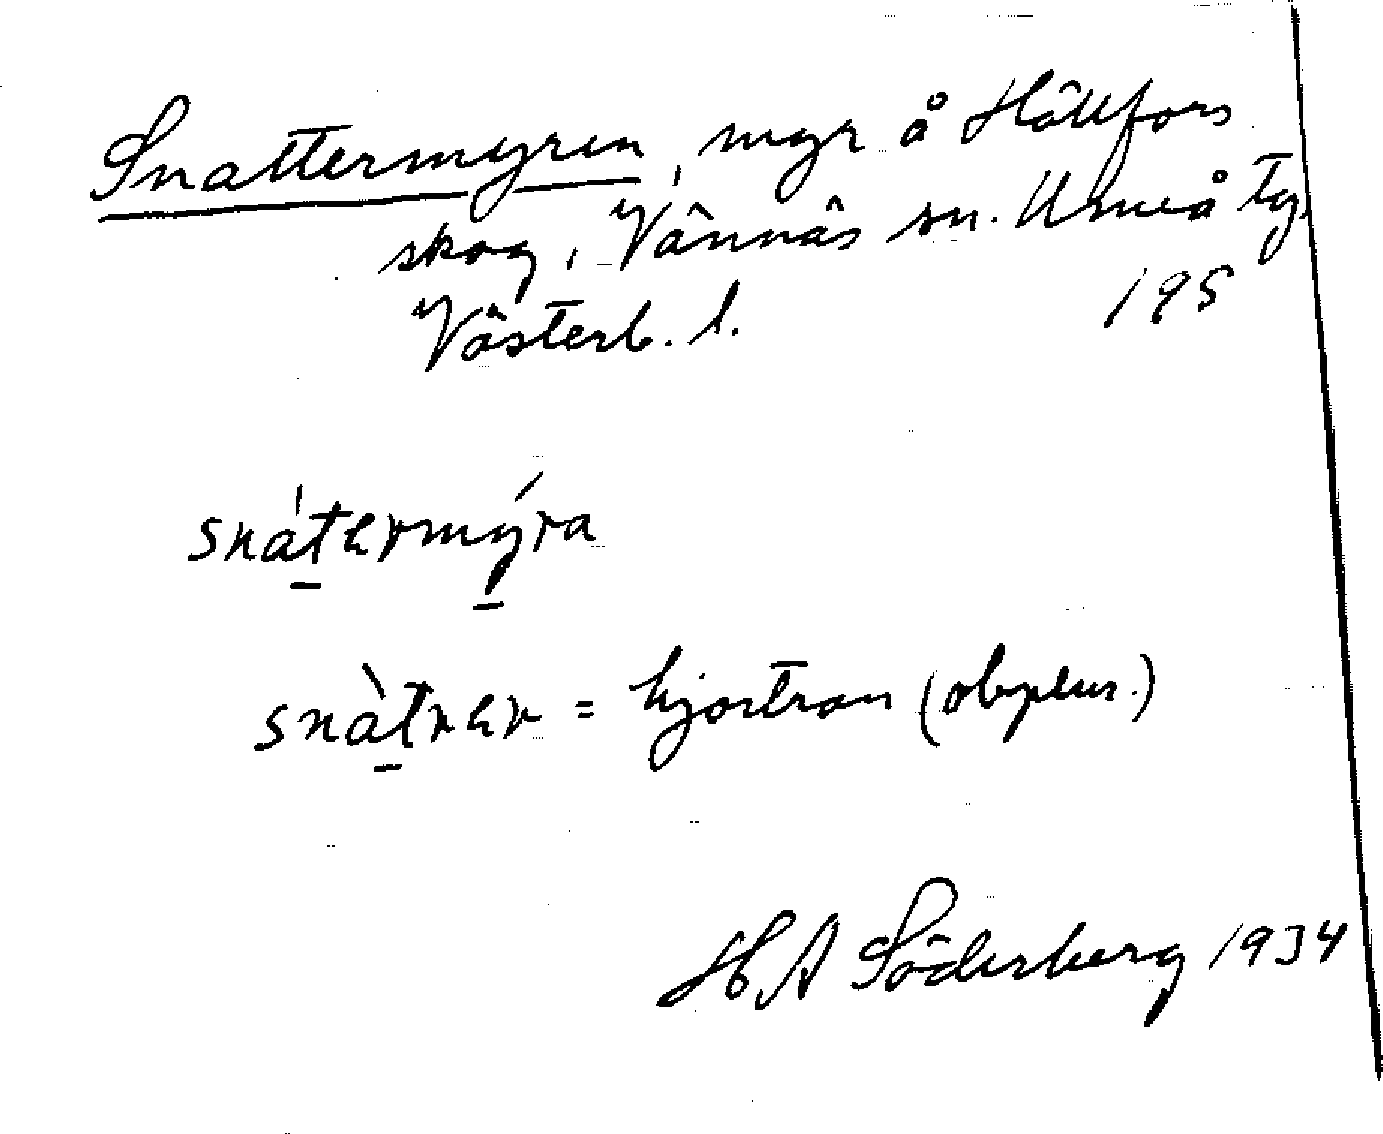 Snattermyren, myr å Hällfors
skog, Vännäs sn. Umeå tg.
Västerb. l. 195
snátermýra
snàtrer = hjortron (obplur.)
HA Söderberg 1934